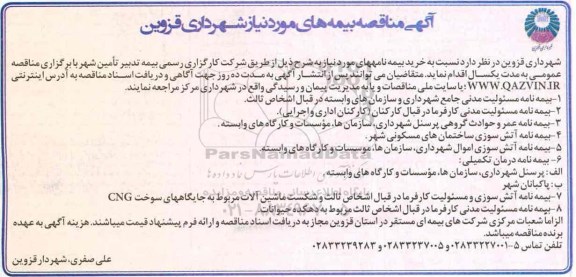 آگهی مناقصه بیمه های مورد نیاز شهرداری قزوین
شهرداری قزوین در نظر دارد نسبت به خرید بیمه نامههای مورد نیاز به شرح ذیل از طریق شرکت کارگزاری رسمی بیمه تدبیر تأمین شهر با برگزاری مناقصه
عمومی به مدت یکسال اقدام نماید. متقاضیان می توانند پس از انتشار آگهی به مدت ده روز جهت آگاهی و دریافت اسناد مناقصه به آدرس اینترنتی
WWW.QAZVIN.IR یا سایت ملی مناقصات و یا به مدیریت پیمان و رسیدگی واقع در شهرداری مرکز مراجعه نمایند.
۱-بیمه نامه مسئولیت مدنی جامع شهرداری و سازمان های وابسته در قبال اشخاص ثالث.
۲-بیمه نامه مسئولیت مدنی کارفرما در قبال کارکنان (کارکنان اداری و اجرایی).
۳-بیمه نامه عمر و حوادث گروهی پرسنل شهرداری، سازمان ها، مؤسسات و کارگاه های وابسته.
۴-بیمه نامه آتش سوزی ساختمان های مسکونی شهر.
۵-بیمه نامه آتش سوزی اموال شهرداری، سازمان ها، موسسات و کارگاه های وابسته.
۶-بیمه نامه درمان تکمیلی:
الف: پرسنل شهرداری، سازمان ها، مؤسسات و کارگاه های وابسته.
ب: پاکبانان شهر
۷-بیمه نامه آتش سوزی و مسئولیت کارفرما در قبال اشخاص ثالث و شکست ماشین آلات مربوط به جایگاههای سوخت CNG
۸-بیمه نامه مسئولیت مدنی کارفرما در قبال اشخاص ثالث مربوط به دهکده حیوانات
الزاما شعبات مرکزی شرکت های بیمه ای مستقر در استان قزوین مجاز به دریافت اسناد مناقصه و ارائه فرم پیشنهاد قیمت میباشند. هزینه آگهی به عهده
برنده مناقصه میباشد.
تلفن تماس ۵-۰۲۸۳۳۲۲۷۰۰۱ و ۰۲۸۳۳۲۳۷۰۰۵ و ۰۲۸۳۳۲۳۹۲۸۳
علی صفری، شهردار قزوین
ParsNamadData